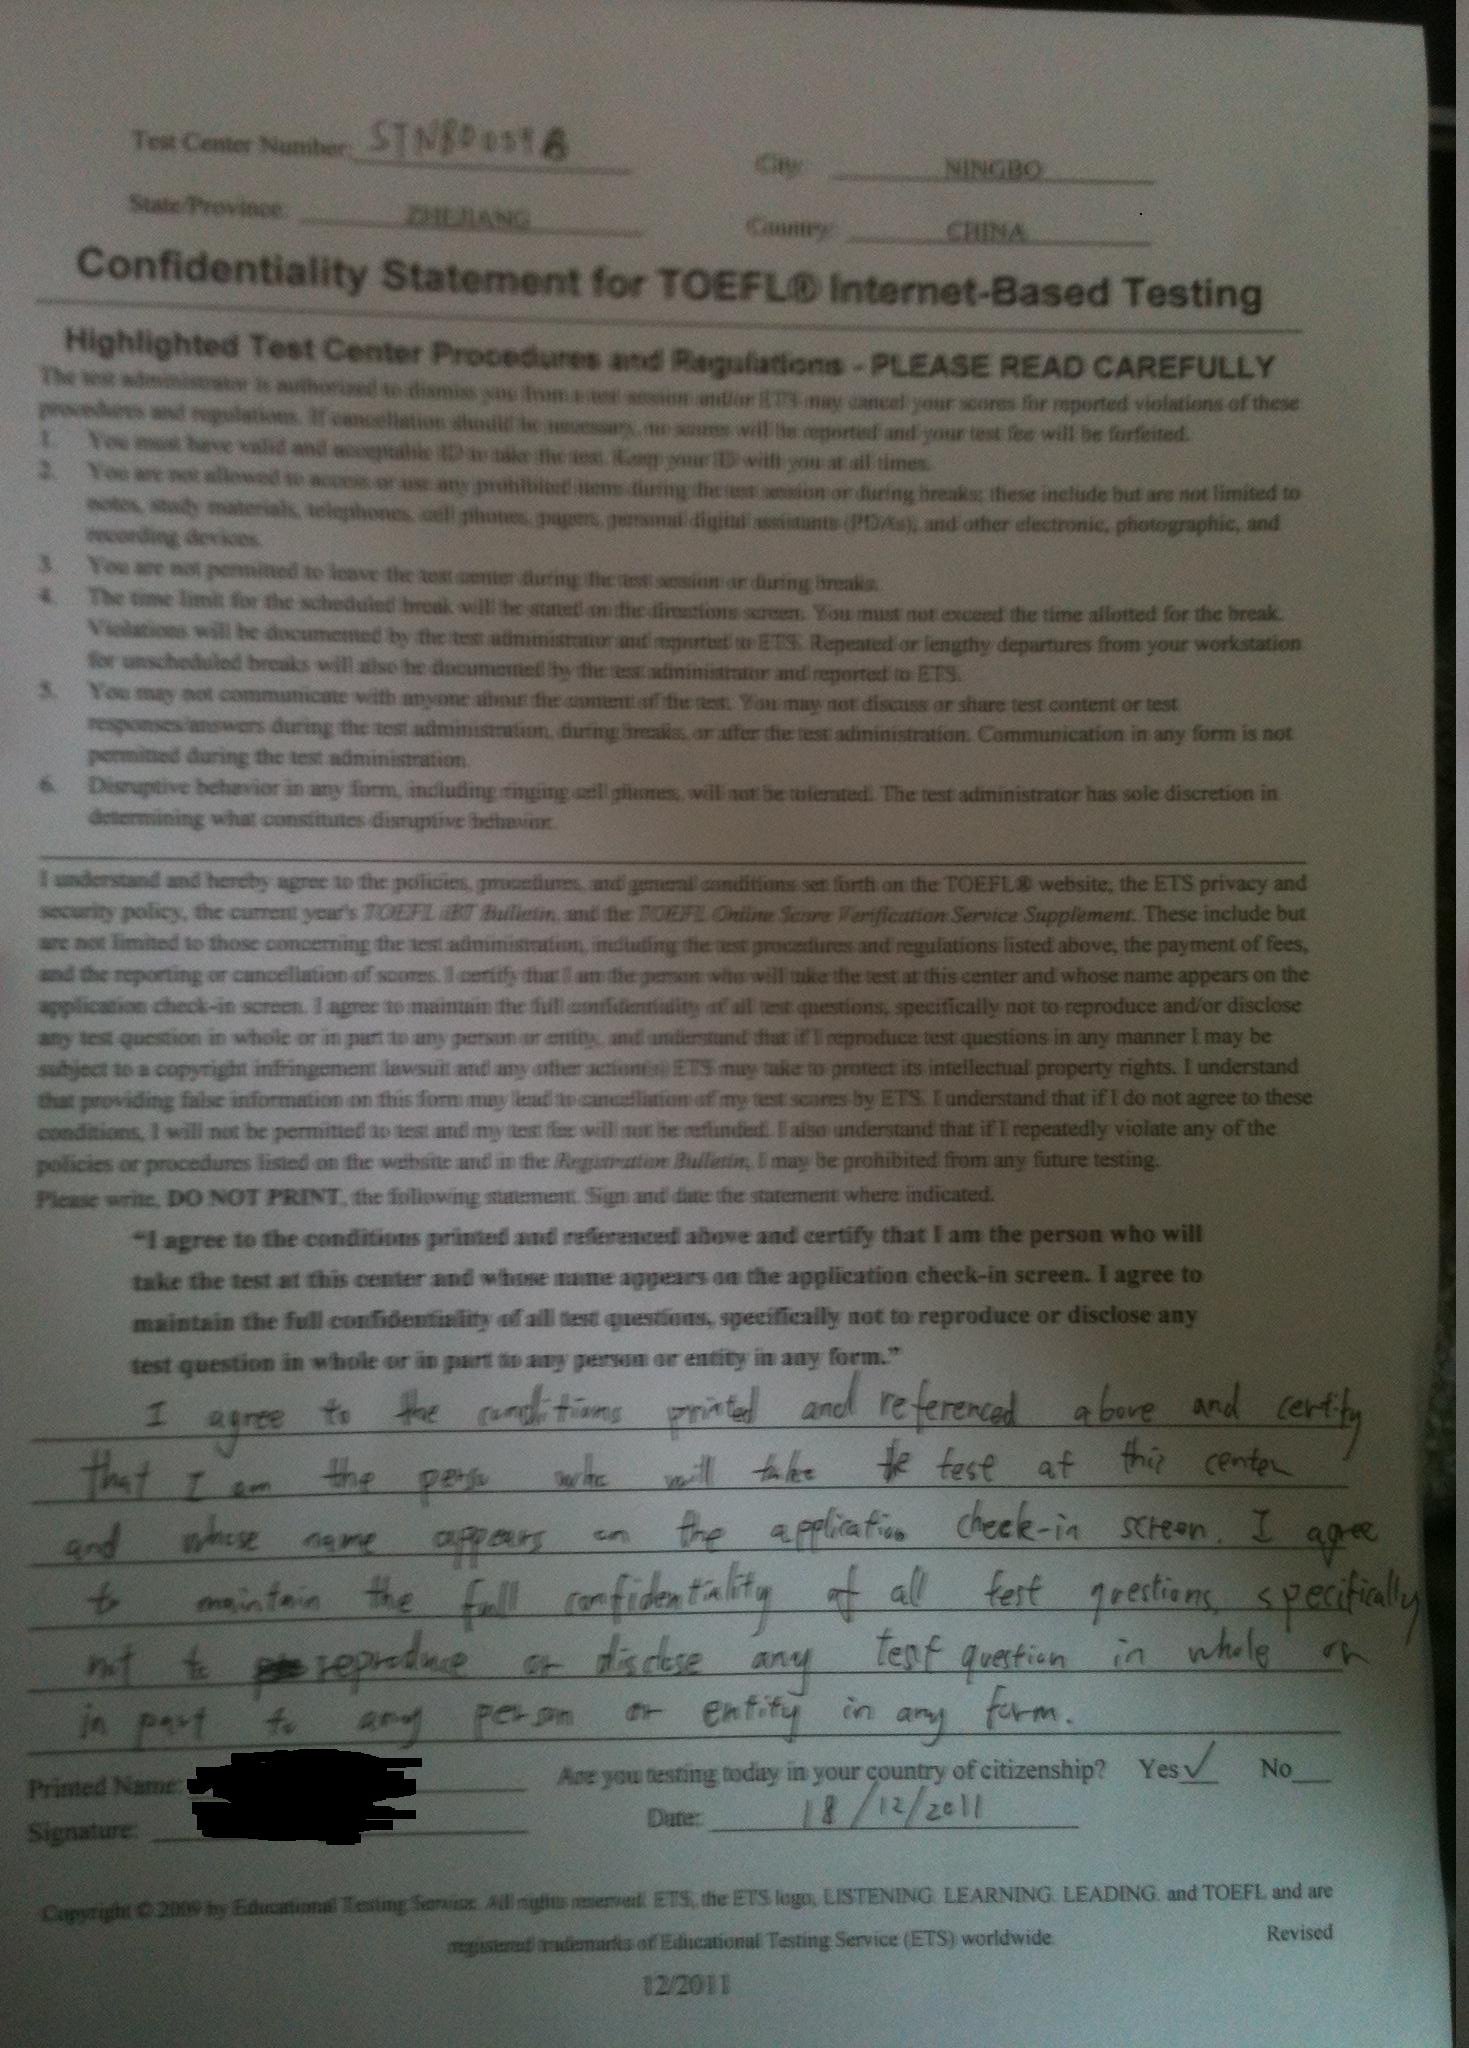 Test Center Number: STN80059A
City: NINGBO
State/Province: ZHEJIANG
Country: CHINA
Confidentiality Statement for TOEFL® Internet-Based Testing
Highlighted Test Center Procedures and Regulations - PLEASE READ CAREFULLY
The test administrator is authorized to dismiss you from a test session and/or ETS may cancel your scores for reported violations of these
procedures and regulations. If cancellation should be necessary, no scores will be reported and your test fee will be forfeited.
1. You must have valid and acceptable ID to take the test. Keep your ID with you at all times.
2. You are not allowed to access or use any prohibited items during the test session or during breaks; these include but are not limited to
notes, study materials, telephones, cell phones, papers, personal digital assistants (PDAs), and other electronic, photographic, and
recording devices.
3. You are not permitted to leave the test center during the test session or during breaks.
4. The time limit for the scheduled break will be stated on the directions screen. You must not exceed the time allotted for the break.
Violations will be documented by the test administrator and reported to ETS. Repeated or lengthy departures from your workstation
for unscheduled breaks will also be documented by the test administrator and reported to ETS.
5. You may not communicate with anyone about the content of the test. You may not discuss or share test content or test
responses/answers during the test administration, during breaks, or after the test adininistration. Communication in any form is not
permitted during the test administration.
6. Disruptive behavior in any form, including ringing cell phones, will not be tolerated. The test administrator has sole discretion in
determining what constitutes disruptive behavior.
I understand and hereby agree to the policies, procedures, and general conditions set forth on the TOEFL® website, the ETS privacy and
security policy, the current year's TOEFL iBT Bulletin, and the TOEFL Online Score Verification Service Supplement. These include but
are not limited to those concerning the test administration, including the test procedures and regulations listed above, the payment of fees,
and the reporting or cancellation of scores. I certify that I am the person who will take the test at this center and whose name appears on the
application check-in screen. I agree to maintain the full confidentiality of all test questions, specifically not to reproduce and/or disclose
any test question in whole or in part to any person or entity, and understand that if I reproduce test questions in any manner I may be
subject to a copyright infringement lawsuit and any other action(s) ETS may take to protect its intellectual property rights. I understand
that providing false information on this form may lead to cancellation of my test scores by ETS. I understand that if I do not agree to these
conditions, I will not be permitted to test and my test fee will not be refunded. I also understand that if I repeatedly violate any of the
policies or procedures listed on the website and in the Registration Bulletin, I may be prohibited from any future testing.
Please write, DO NOT PRINT, the following statement. Sign and date the statement where indicated.
“I agree to the conditions printed and referenced above and certify that I am the person who will
take the test at this center and whose name appears on the application check-in screen. I agree to
maintain the full confidentiality of all test questions, specifically not to reproduce or disclose any
test question in whole or in part to any person or entity in any form.”
I agree to the conditions printed and referenced above and certify
that I am the person who will take the test at this center
and whose name appears on the application check-in screen. I agree
to maintain the full confidentiality of all test questions, specifically
not to reproduce or disclose any test question in whole or
in part to any person or entity in any form.
Printed Name:
Are you testing today in your country of citizenship? Yes ✓ No
Signature:
Date: 18/12/2011
Copyright © 2009 by Educational Testing Service. All rights reserved. ETS, the ETS logo, LISTENING. LEARNING. LEADING. and TOEFL and are
registered trademarks of Educational Testing Service (ETS) worldwide.
Revised
12/2011